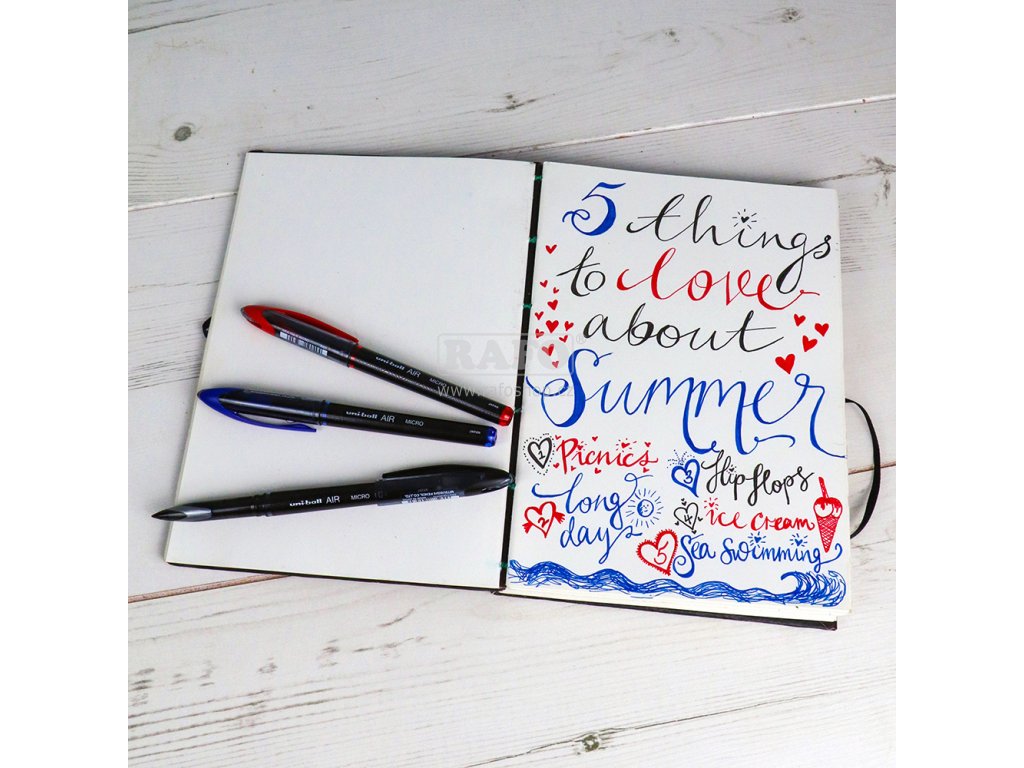 5 things
to love
about
Summer
1 Picnics
2 long
day
3 flip flops
4 ice cream
5 Sea Swimming
uni-ball AIR MICRO
uni-ball AIR MICRO
uni-ball AIR MICRO
RAFO®
www.rafoshop.cz